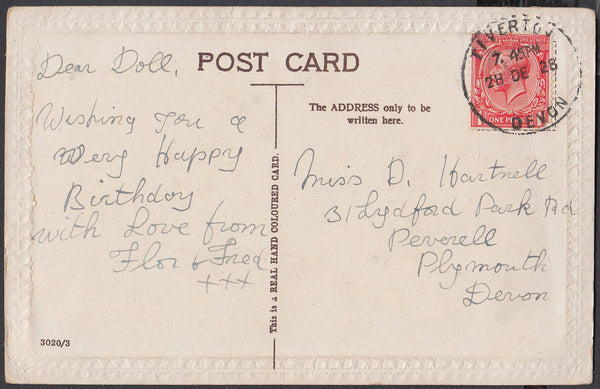 POST CARD
Dear Doll,
Wishing You a
Very Happy
Birthday
with Love from
Flor & Fred
+++
3020/3
This is a REAL HAND COLOURED CARD.
The ADDRESS only to be
written here.
TIVERTON
7.45PM
28 DE 28
DEVON
ONE PE
Miss D. Hartnell
31 Lydford Park Rd
Peverell
Plymouth
Devon